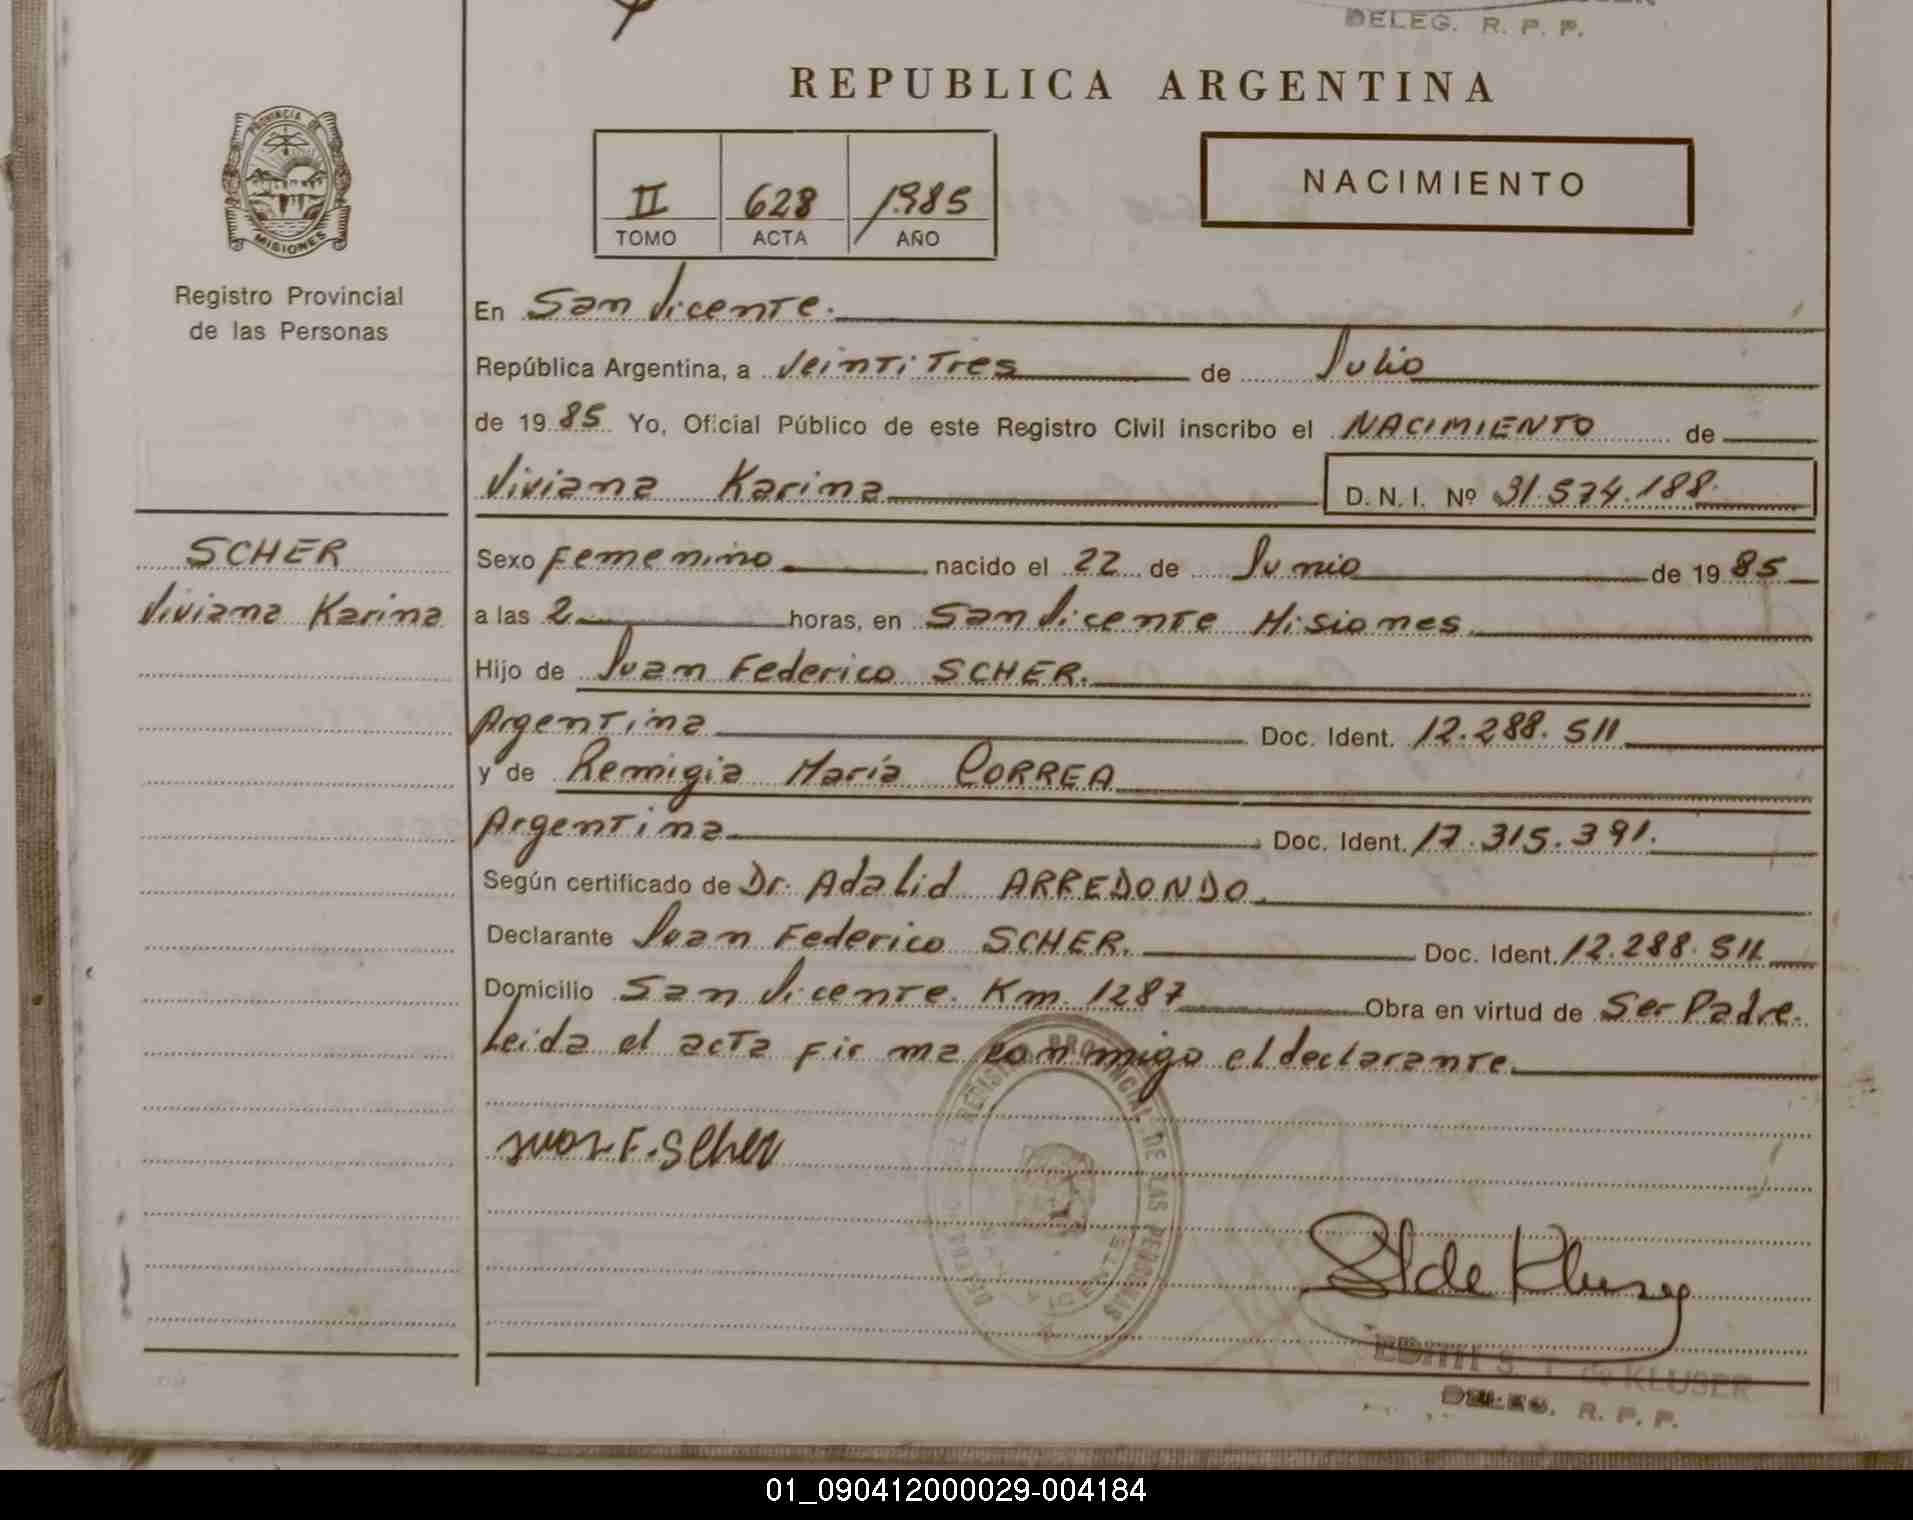 DELEG. R. P. P.
REPUBLICA ARGENTINA
PROVINCIA DE
MISIONES
Registro Provincial
de las Personas
II 628 1985
TOMO ACTA AÑO
NACIMIENTO
En San Vicente.
República Argentina, a Veinti Tres de Julio
de 1985 Yo, Oficial Público de este Registro Civil inscribo el NACIMIENTO de
Viviana Karina D. N. I. Nº 31.574.188.
SCHER
Viviana Karina
Sexo Femenino nacido el 22 de Junio de 1985
a las 2 horas, en San Vicente Misiones.
Hijo de Juan Federico SCHER.
Argentina Doc. Ident. 12.288.511
y de Remigia María CORREA
Argentina Doc. Ident. 17.315.391.
Según certificado de Dr. Adalid ARREDONDO.
Declarante Juan Federico SCHER. Doc. Ident. 12.288.511
Domicilio San Vicente. Km. 1287 Obra en virtud de Ser Padre.
Leida el acta firma conmigo el declarante.
REGISTRO PROVINCIAL DE LAS PERSONAS
VICENTE
Juan F. Scher
S I de Kluser
EDITH S. I. de KLUSER
DELEG. R. P. P.
01_090412000029-004184